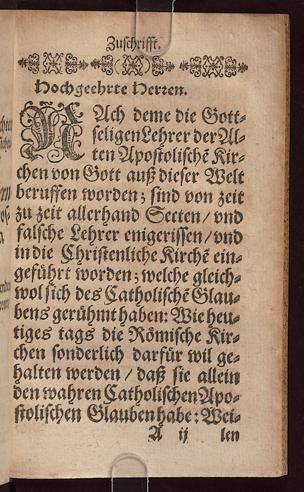 Zuschrifft.
Hochgeehrte Herren.
NAch deme die Gott-
seligen Lehrer der Al-
ten Apostolischẽ Kir-
chen von Gott auß dieser Welt
beruffen worden; sind von zeit
zu zeit allerhand Secten / vnd
falsche Lehrer enigerissen / vnd
in die Christenliche Kirchẽ ein-
geführt worden; welche gleich-
wol sich des Catholischẽ Glau-
bens gerühmt haben: Wie heu-
tiges tags die Römische Kir-
chen sonderlich darfür wil ge-
halten werden / daß sie allein
den wahren Catholischen Apo-
stolischen Glauben habe: Wei-
A ij len